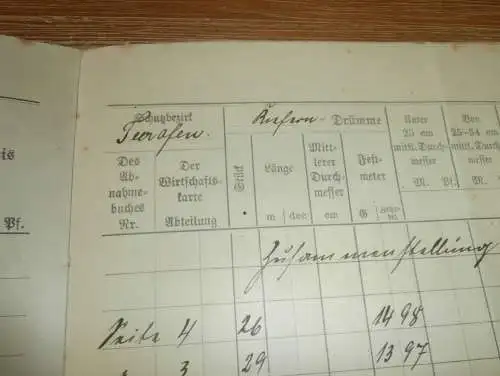 Schutzbezirk
Teerofen.
Kiefern- Drümme
Unter
25 cm
mittl. Durch-
messer
M. Pf.
Von
25-34 cm
mittl. Durch-
messer
M.
is
Pf.
Des
Ab-
nahme-
buches
Nr.
Der
Wirtschafts-
karte
Abteilung
Stück
Länge
m dec
Mitt-
lerer
Durch-
messer
cm
Fest-
meter
G
Zusammenstellung
Seite 4 26 14 98
" 3 29 13 97